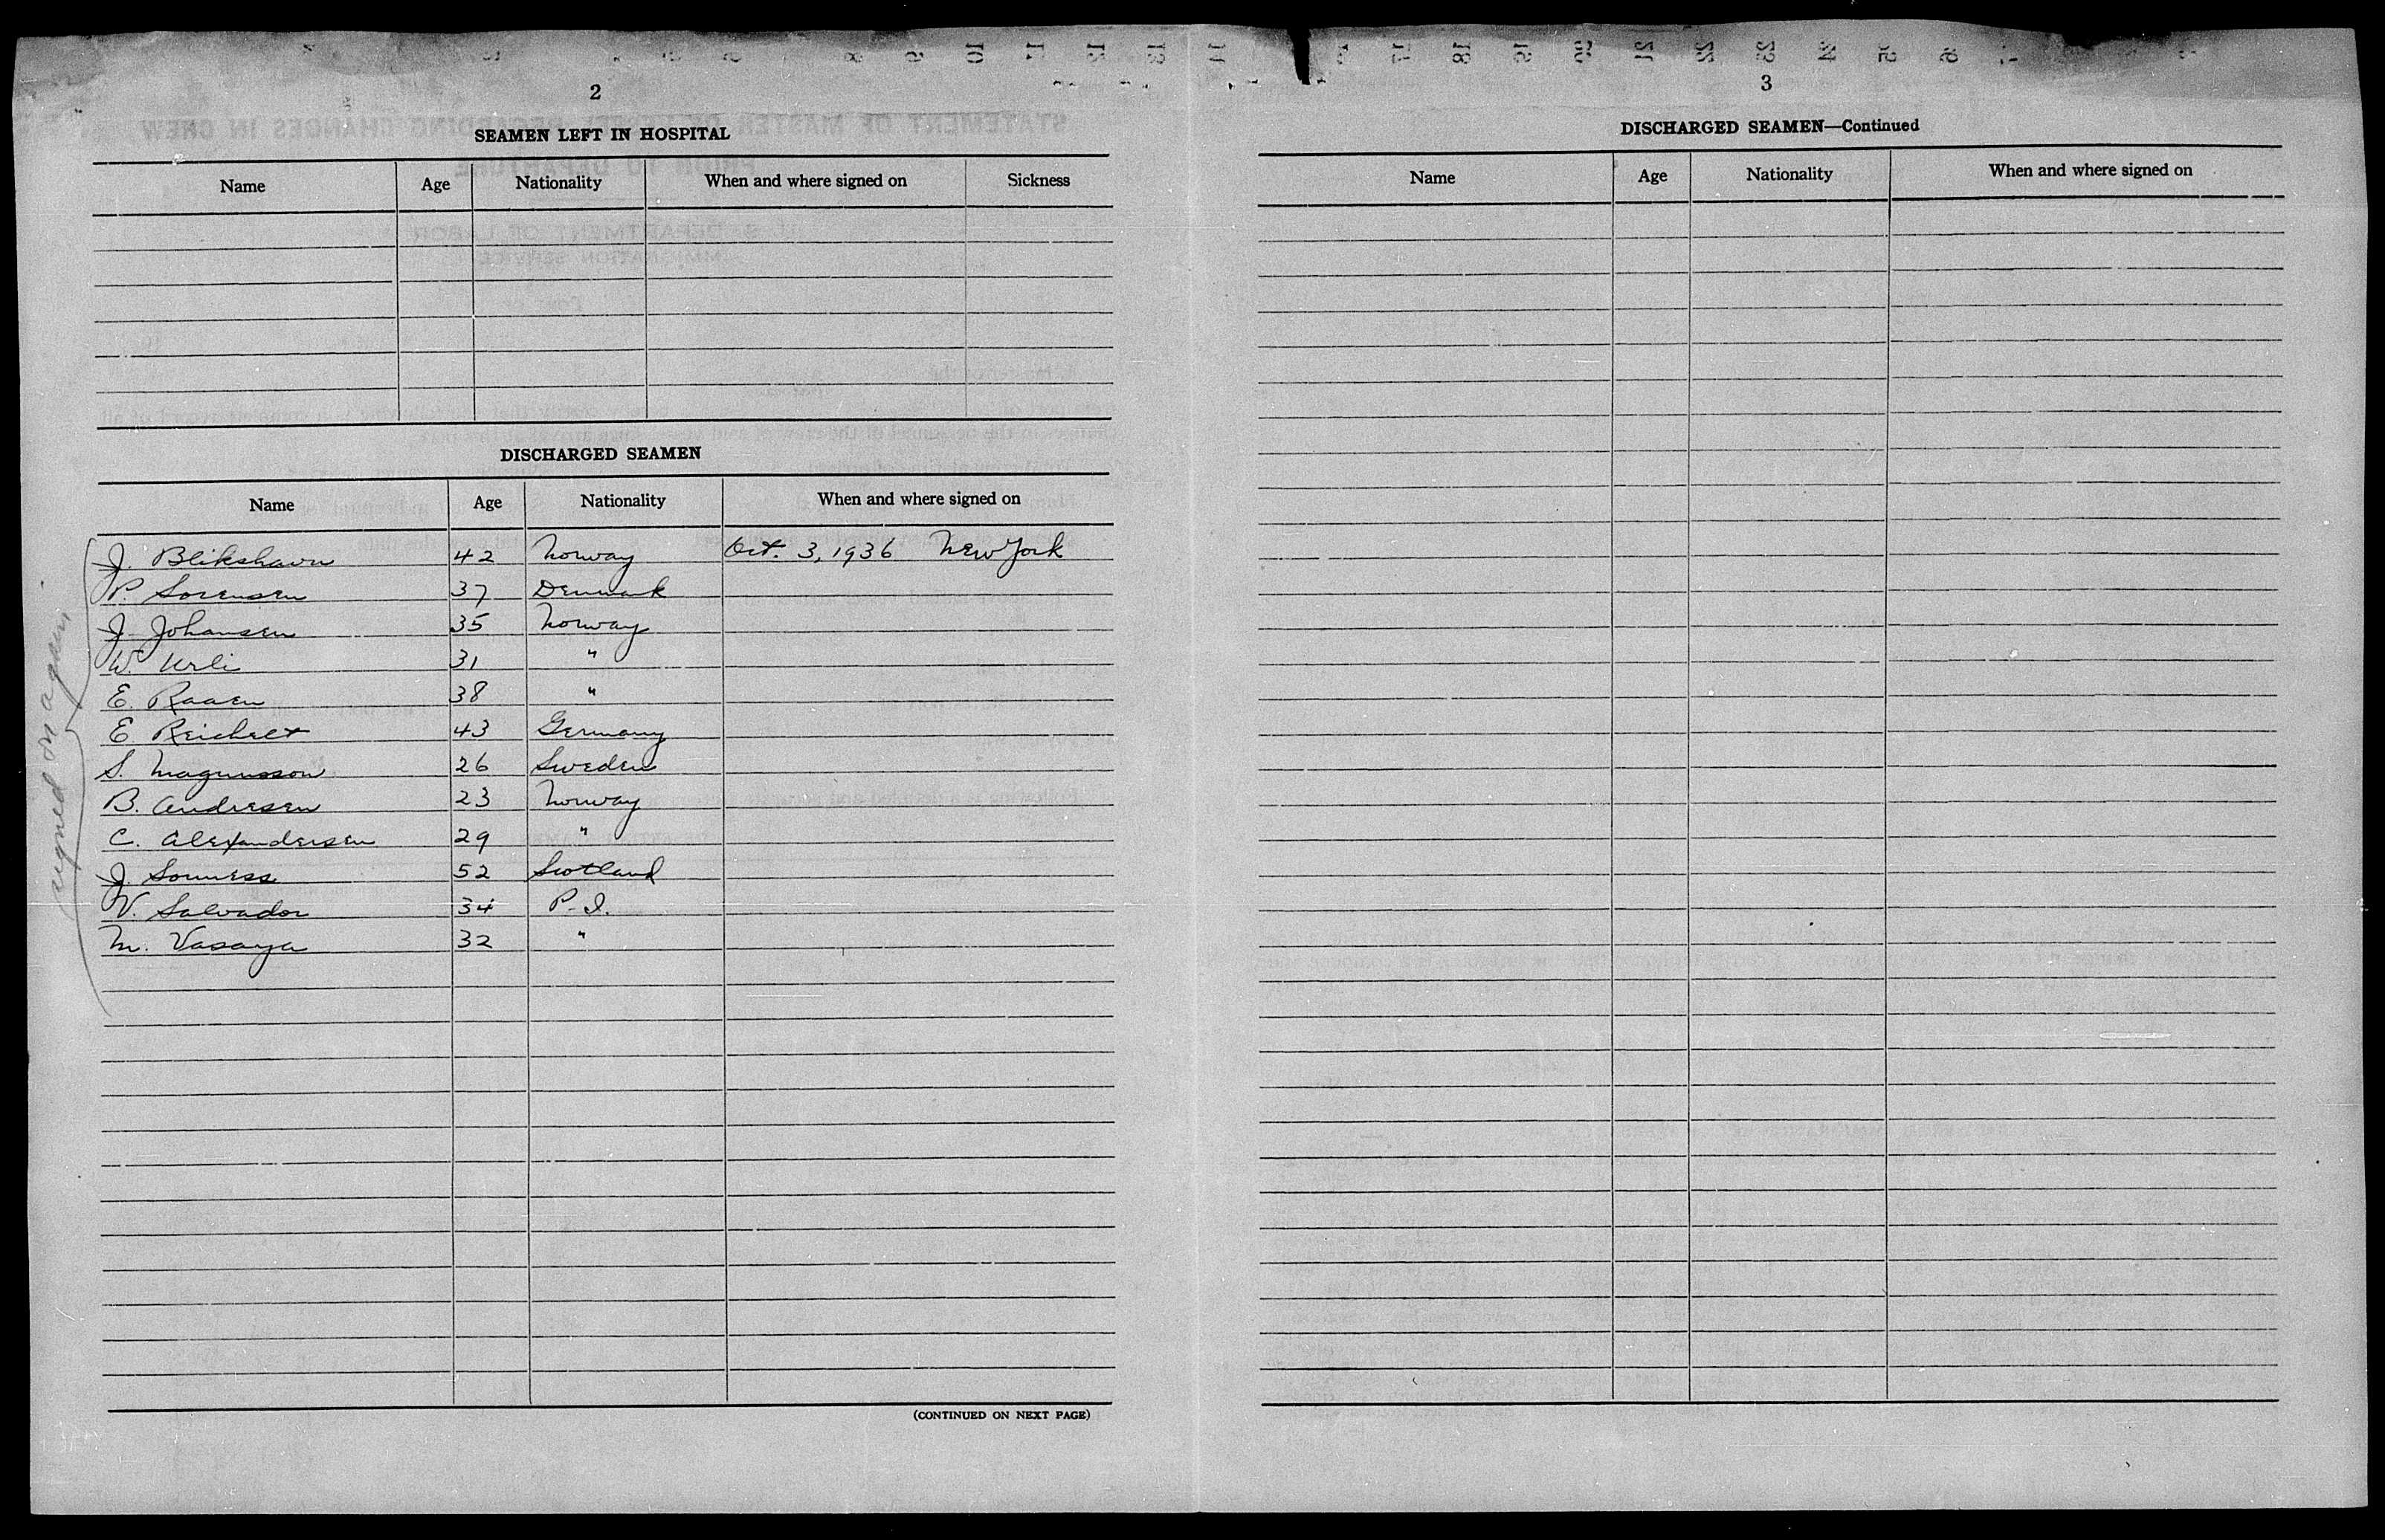 2
SEAMEN LEFT IN HOSPITAL
Name Age Nationality When and where signed on Sickness
DISCHARGED SEAMEN
Name Age Nationality When and where signed on
J. Blikshavn 42 Norway Oct. 3, 1936 New York
P. Sorensen 37 Denmark
J. Johansen 35 Norway
W. Urli 31 "
E. Raaen 38 "
E. Reichelt 43 Germany
S. Magnusson 26 Sweden
B. Andresen 23 Norway
C. Alexandersen 29 "
J. Souness 52 Scotland
V. Salvador 34 P.I.
M. Vasaya 32 "
signed on again
(CONTINUED ON NEXT PAGE)
3
DISCHARGED SEAMEN—Continued
Name Age Nationality When and where signed on